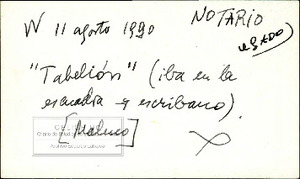 W 11 agosto 1990
NOTARIO
usado)
"Tabelión" (iba en la
escuadra y escribano).
[Malmo]